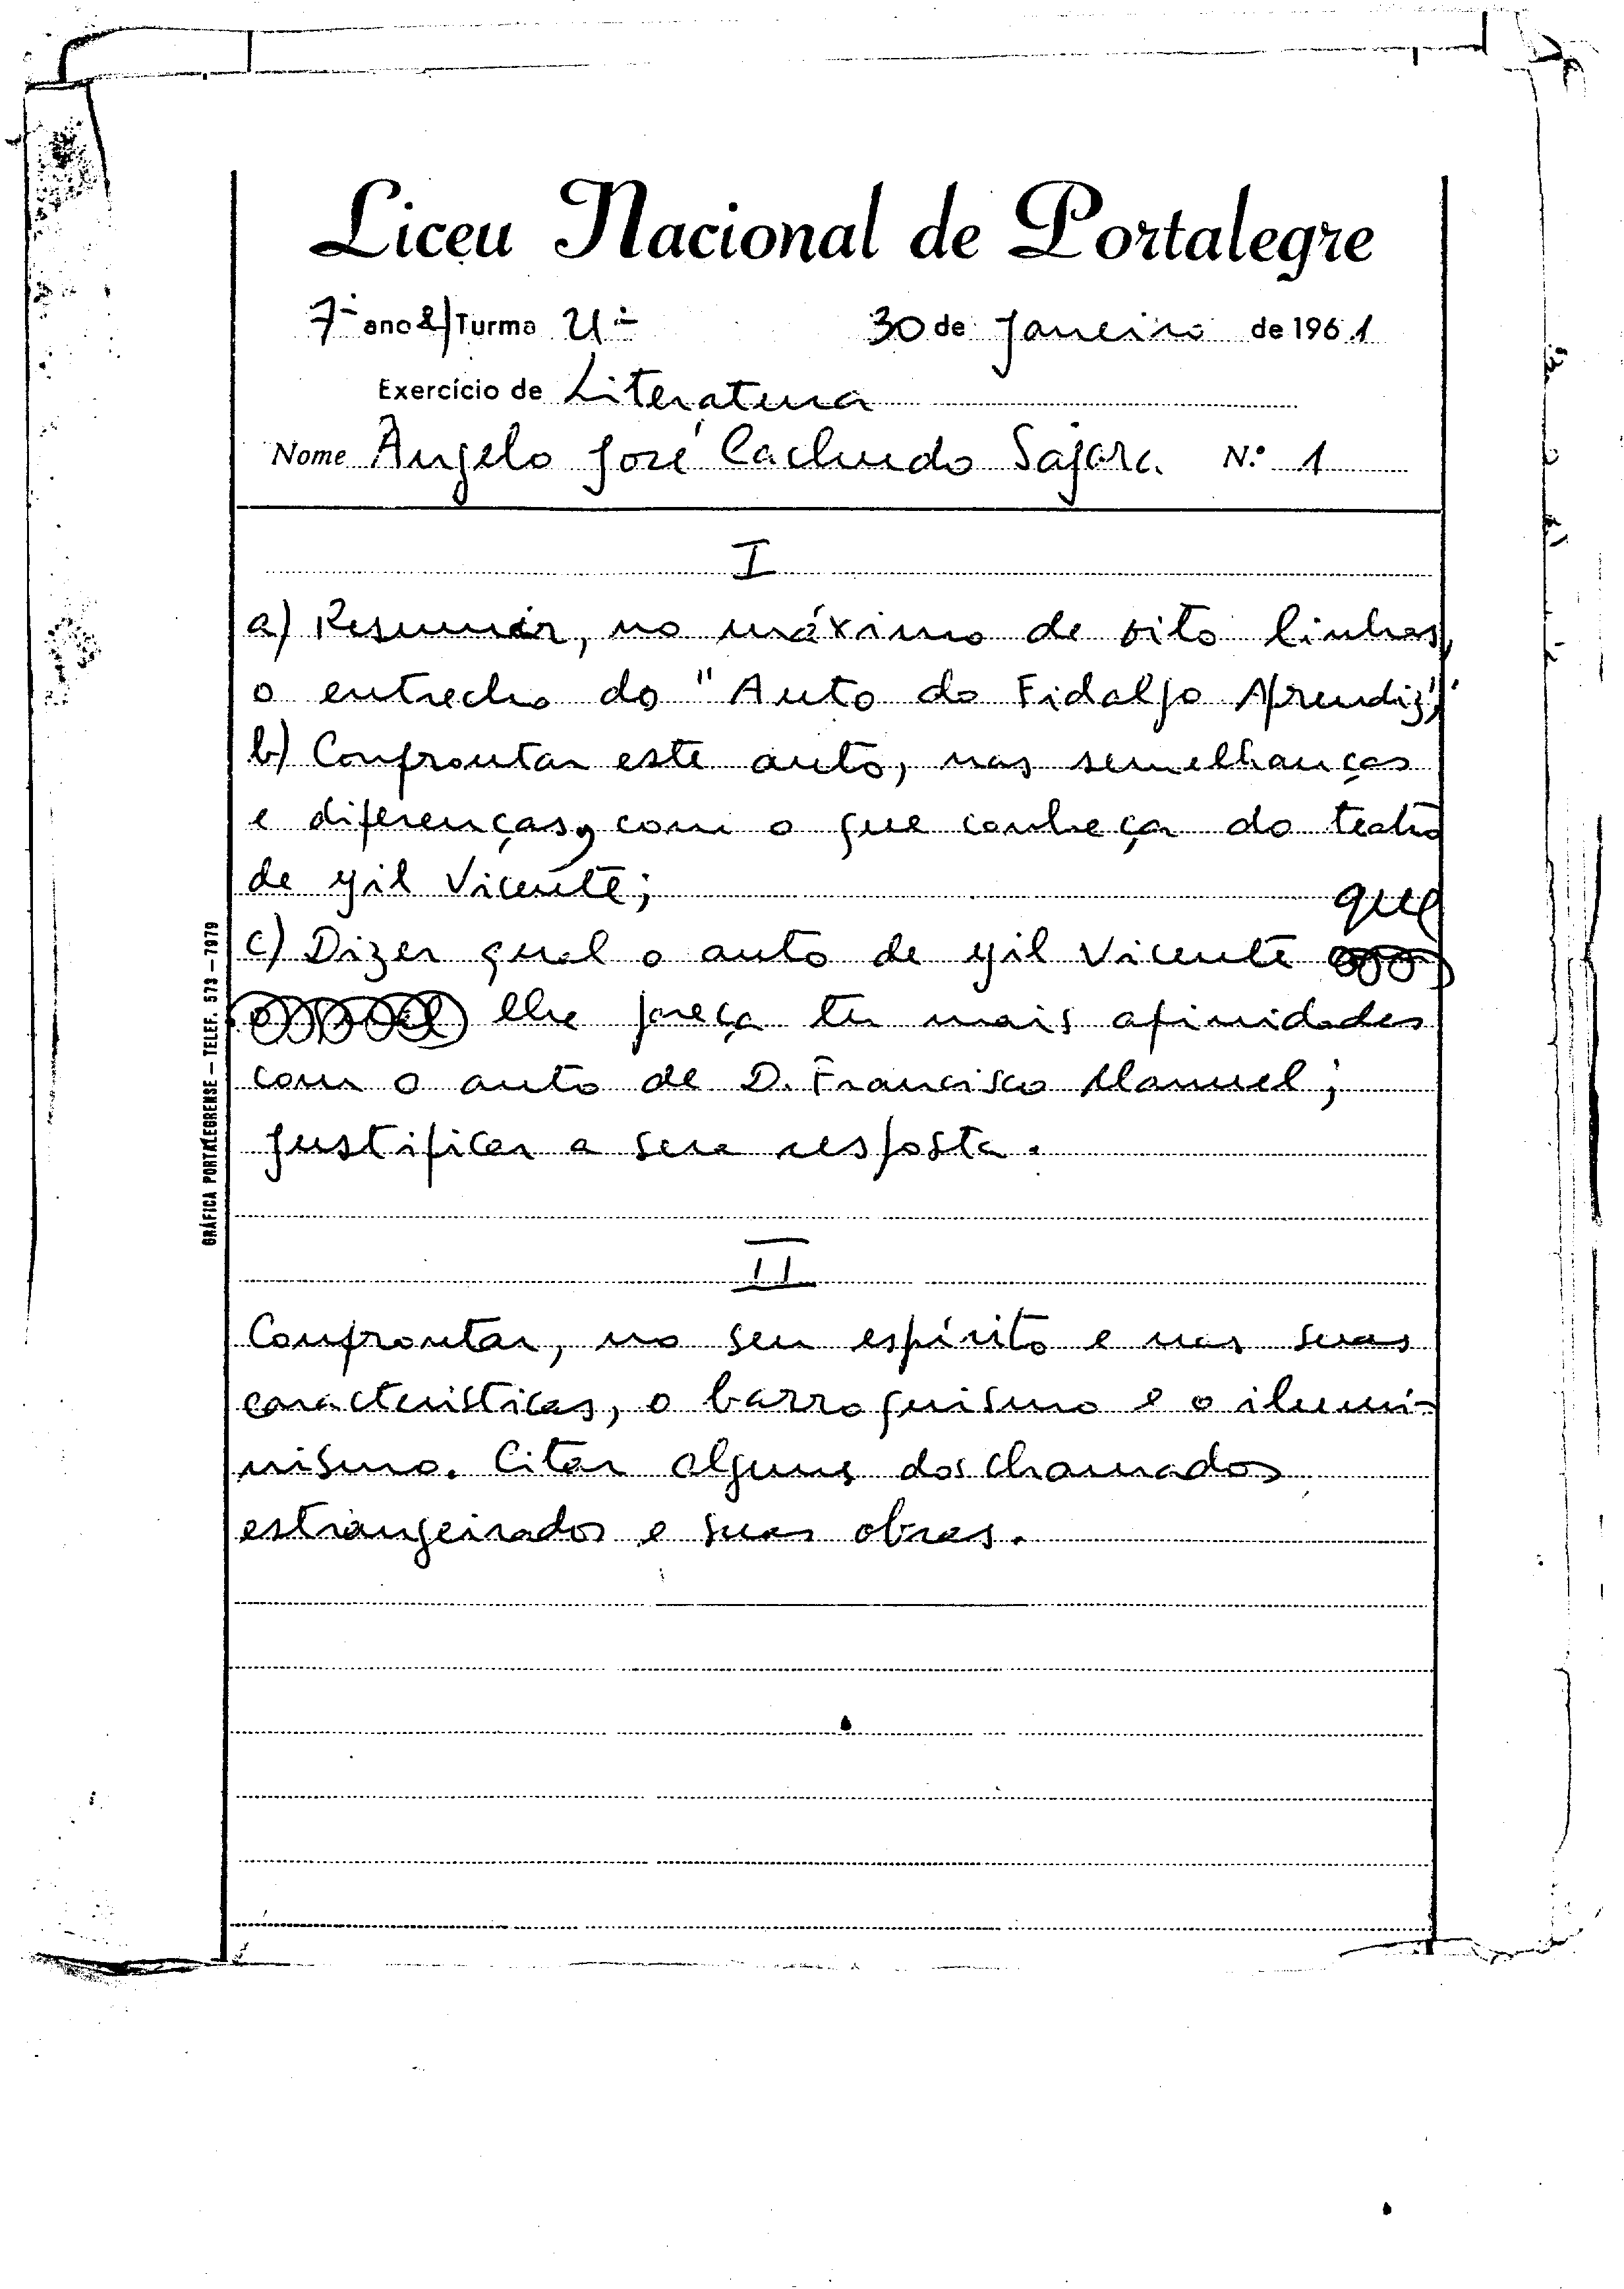 Liceu Nacional de Portalegre
7º ano Turma Uª 30 de Janeiro de 1961
Exercício de Literatura
Nome Angelo José Cachudo Sajara N.º 1
I
a) Resumir, no máximo de oito linhas,
o entrecho do "Auto do Fidalgo Aprendiz";
b) Confrontar este auto, nas semelhanças
e diferenças, com o que conheça do teatro
de Gil Vicente;
c) Dizer qual o auto de Gil Vicente que
lhe pareça ter mais afinidades
com o auto de D. Francisco Manuel;
justificar a sua resposta.
II
Confrontar, no seu espírito e nas suas
caracteristicas, o barroquismo e o ilumi-
nismo. Citar alguns dos chamados
estrangeirados e suas obras.
GRÁFICA PORTALEGRENSE — TELEF. 573 — 7979